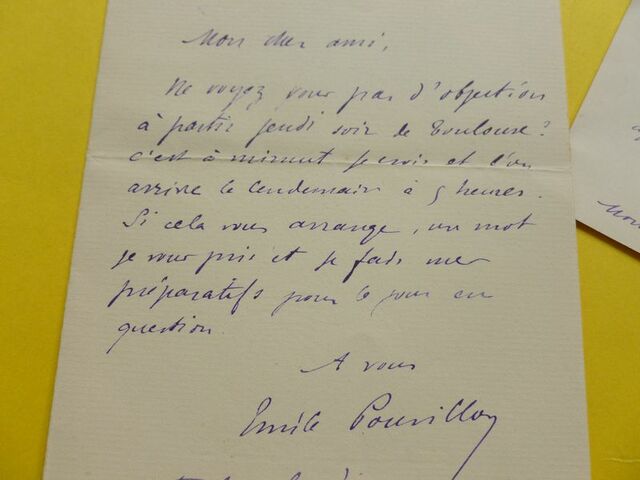 Mon cher ami,
Ne voyez vous pas d'objection
à partir jeudi soir de Toulouse?
c'est à minuit je crois et l'on
arrive le lendemain à 9 heures.
Si cela vous arrange, un mot
je vous prie et je fais mes
préparatifs pour le jour en
question.
A vous
Emile Pouvillon